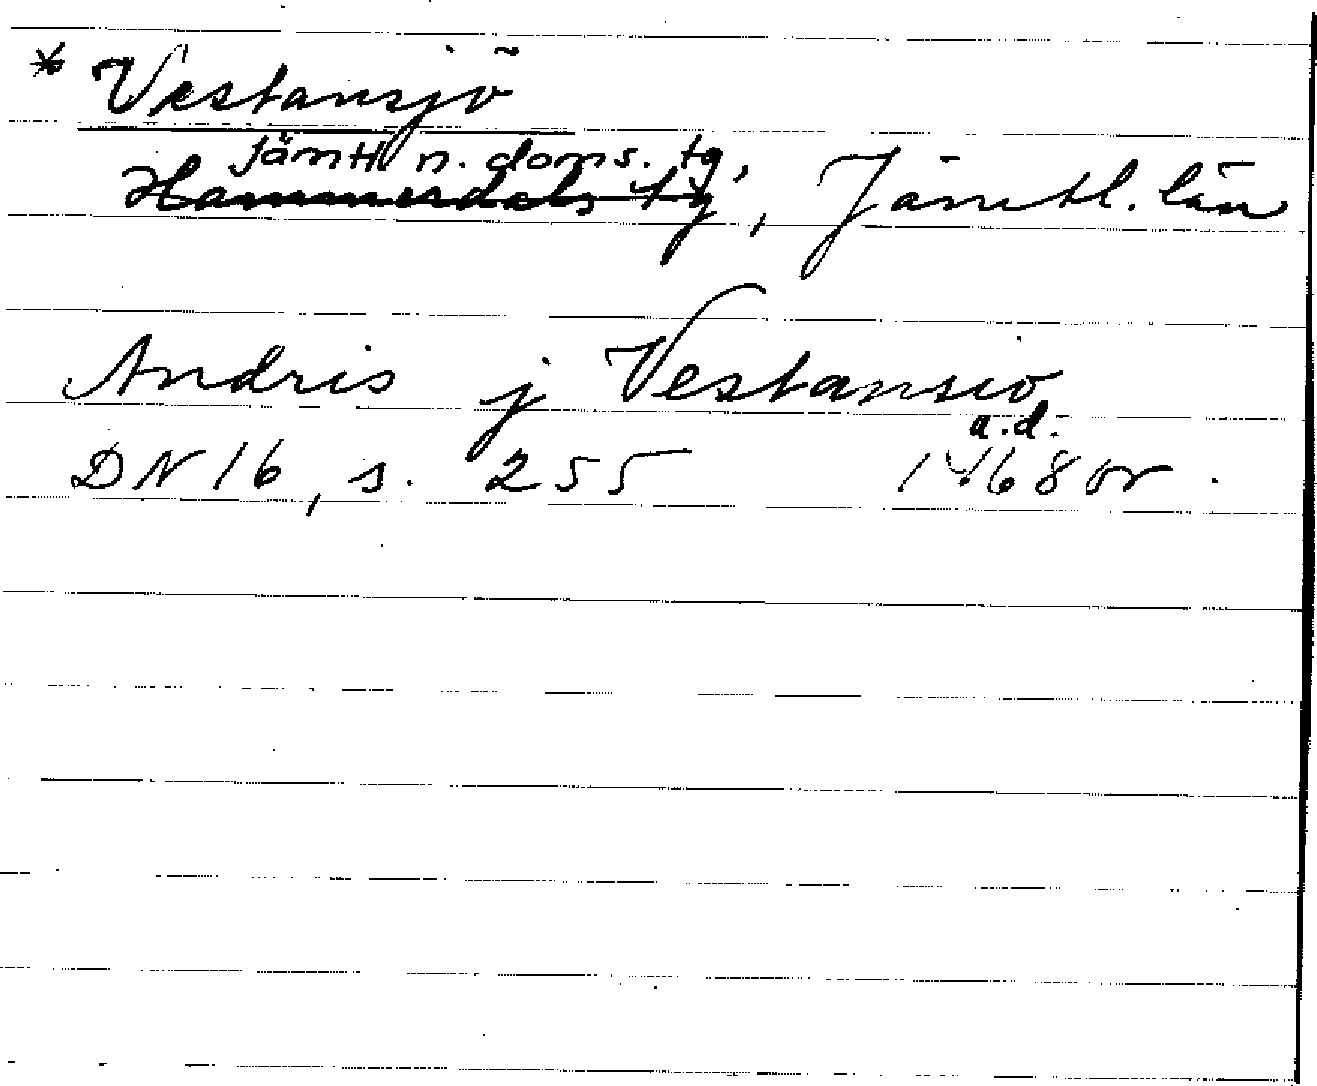 * Vestansjö
Jämtl n. doms. tg,
Hammerdals tg, Jämtl. län
Andris j Vestansio
a.d.
DN 16, s. 255 1468 or.